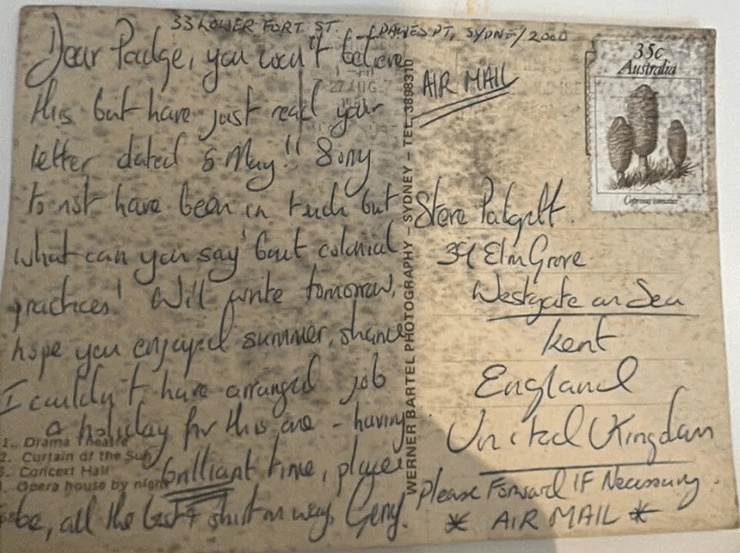 33 LOWER FORT ST. DAWES PT, SYDNEY 2000
Dear Padge, you won't believe
this but have just read your
letter dated 8 May!! Sorry
to not have been in touch but
what can you say 'bout colonial
practices! Will write tomorrow,
hope you enjoyed summer, shame
I couldn't have arranged job
& holiday for this one - having
brilliant time, place
to be, all the best & shirt on way, Gerry.
1. Drama Theatre
2. Curtain of the Sun
3. Concert Hall
4. Opera house by night
WERNER BARTEL PHOTOGRAPHY - SYDNEY - TEL. 3898310
27 AUG
AIR MAIL
35c
Australia
Coprinus comatus
Steve Padgett.
Elm Grove
Westgate on Sea
Kent
England
United Kingdom
Please Forward IF Necessary.
* AIR MAIL *